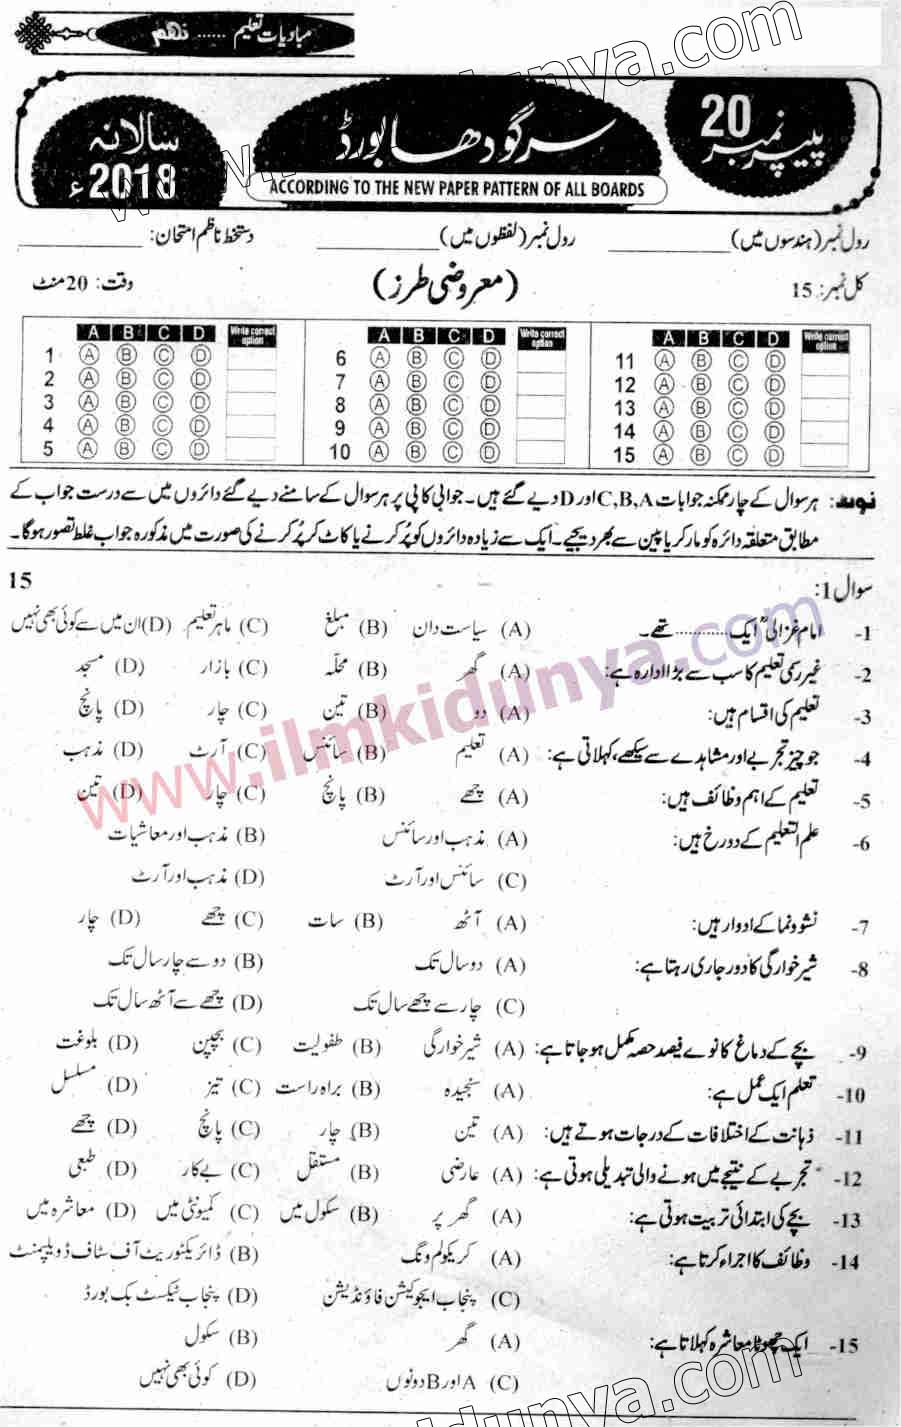 مبادیات تعلیم ...... نہم
پیپر نمبر 20
سرگودھا بورڈ
ACCORDING TO THE NEW PAPER PATTERN OF ALL BOARDS
سالانہ 2018ء
رول نمبر (ہندسوں میں) ____________ رول نمبر (لفظوں میں) ____________ دستخط ناظم امتحان: ____________
کل نمبر: 15 (معروضی طرز) وقت: 20 منٹ
A B C D Write correct option A B C D Write correct option A B C D Write correct option
1 A B C D 6 A B C D 11 A B C D
2 A B C D 7 A B C D 12 A B C D
3 A B C D 8 A B C D 13 A B C D
4 A B C D 9 A B C D 14 A B C D
5 A B C D 10 A B C D 15 A B C D
نوٹ: ہر سوال کے چار ممکنہ جوابات C,B,A اور D دیے گئے ہیں۔ جوابی کاپی پر ہر سوال کے سامنے دیے گئے دائروں میں سے درست جواب کے
مطابق متعلقہ دائرہ کو مارکر یا پین سے بھر دیجیے۔ ایک سے زیادہ دائروں کو پُر کرنے یا کاٹ کر پُر کرنے کی صورت میں مذکورہ جواب غلط تصور ہوگا۔
سوال 1: 15
1- امام غزالیؒ ایک ............ تھے۔ (A) سیاست دان (B) مبلغ (C) ماہر تعلیم (D) ان میں سے کوئی بھی نہیں
2- غیر رسمی تعلیم کا سب سے بڑا ادارہ ہے: (A) گھر (B) محلّہ (C) بازار (D) مسجد
3- تعلیم کی اقسام ہیں: (A) دو (B) تین (C) چار (D) پانچ
4- جو چیز تجربے اور مشاہدے سے سیکھے، کہلاتی ہے: (A) تعلیم (B) سائنس (C) آرٹ (D) مذہب
5- تعلیم کے اہم وظائف ہیں: (A) چھے (B) پانچ (C) چار (D) تین
6- علم التعلیم کے دو رخ ہیں: (A) مذہب اور سائنس (B) مذہب اور معاشیات
(C) سائنس اور آرٹ (D) مذہب اور آرٹ
7- نشوونما کے ادوار ہیں: (A) آٹھ (B) سات (C) چھے (D) چار
8- شیر خوارگی کا دور جاری رہتا ہے: (A) دو سال تک (B) دو سے چار سال تک
(C) چار سے چھے سال تک (D) چھے سے آٹھ سال تک
9- بچے کے دماغ کا نوے فیصد حصہ مکمل ہو جاتا ہے: (A) شیر خوارگی (B) طفولیت (C) بچپن (D) بلوغت
10- تعلم ایک عمل ہے: (A) سنجیدہ (B) براہ راست (C) تیز (D) مسلسل
11- ذہانت کے اختلافات کے درجات ہوتے ہیں: (A) تین (B) چار (C) پانچ (D) چھے
12- تجربے کے نتیجے میں ہونے والی تبدیلی ہوتی ہے: (A) عارضی (B) مستقل (C) بے کار (D) طبعی
13- بچے کی ابتدائی تربیت ہوتی ہے: (A) گھر پر (B) سکول میں (C) کمیونٹی میں (D) معاشرہ میں
14- وظائف کا اجراء کرتا ہے: (A) کریکولم ونگ (B) ڈائریکٹوریٹ آف سٹاف ڈویلپمنٹ
(C) پنجاب ایجوکیشن فاؤنڈیشن (D) پنجاب ٹیکسٹ بک بورڈ
15- ایک چھوٹا معاشرہ کہلاتا ہے: (A) گھر (B) سکول
(C) A اور B دونوں (D) کوئی بھی نہیں
www.ilmkidunya.com